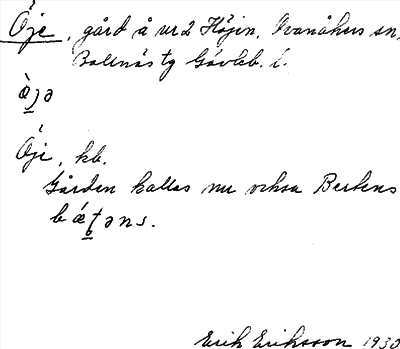 Öje, gård å nr 2 Höjen, Ivanåkers sn,
Bollnäs tg Gävleb. l.
æ̀jə
Öje, hb.
Gården kallas nu också Bertens
bǽʈəns.
Erik Eriksson 1930